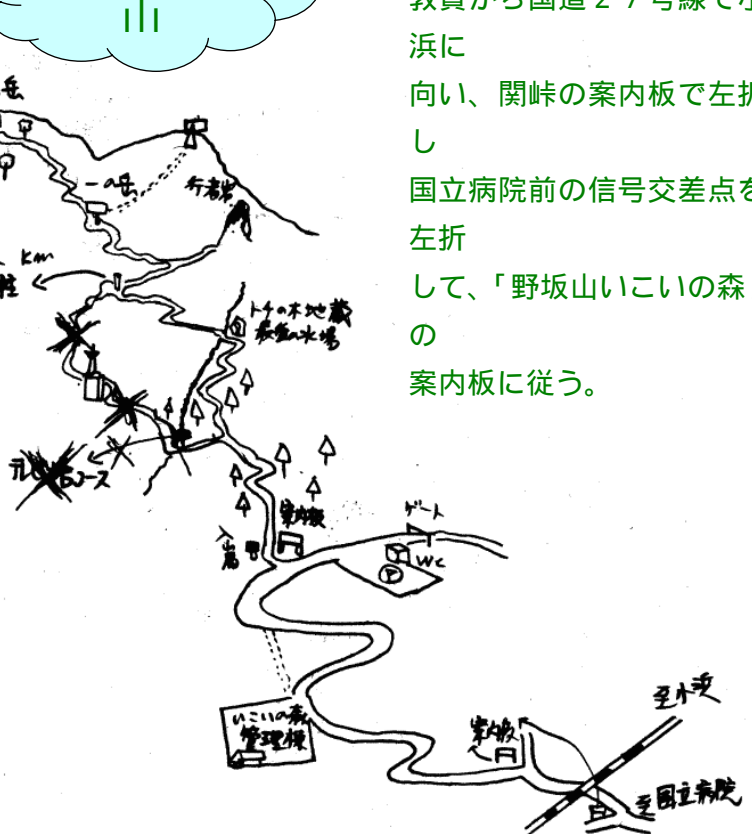 山
敦賀から国道２７号線で小
浜に
向い、関峠の案内板で左折
し
国立病院前の信号交差点を
左折
して、「野坂山いこいの森
の
案内板に従う。
岳
一の岳
行者岩
km
トチの木地蔵
最後の水場
コース
案内板
ゲート
入山届
WC
P
いこいの森
管理棟
案内板
至小浜
至国立病院